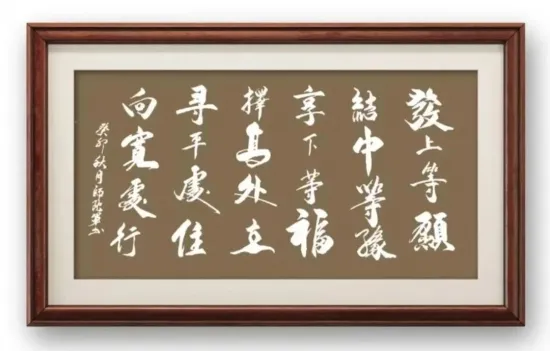 發上等願
結中等緣
享下等福
擇高处立
尋平處住
向寬處行
癸卯秋月